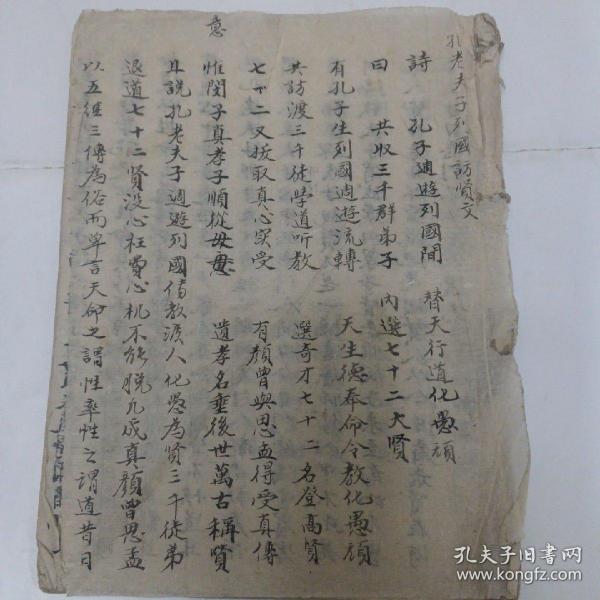 孔老夫子列國訪賢文
詩 孔子週遊列國間 替天行道化愚頑
曰 共收三千群弟子 內選七十二大賢
有孔子生列國週遊流轉 天生德奉命令教化愚頑
共訪渡三千徒學道听教 選奇才七十二名登高賢
七十二又拔取真心实受 有顏曾與思孟得受真傳
惟閔子真孝子順從母意 遺孝名垂後世萬古稱賢
意
且說孔老夫子週遊列國傳教濟人化愚為賢三千徒弟
退道七十二賢没心枉費心机不能脫凡成真顏曾思孟
以五經三傳為俗而單言天命之謂性率性之謂道昔日
孔夫子旧书网
www.kongfz.com